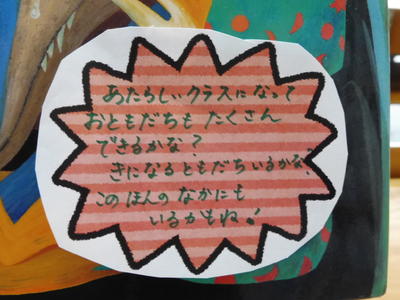 あたらしいクラスになって
おともだちも たくさん
できるかな？
きになるともだちいるかな？
このほんの なかにも
いるかもね！